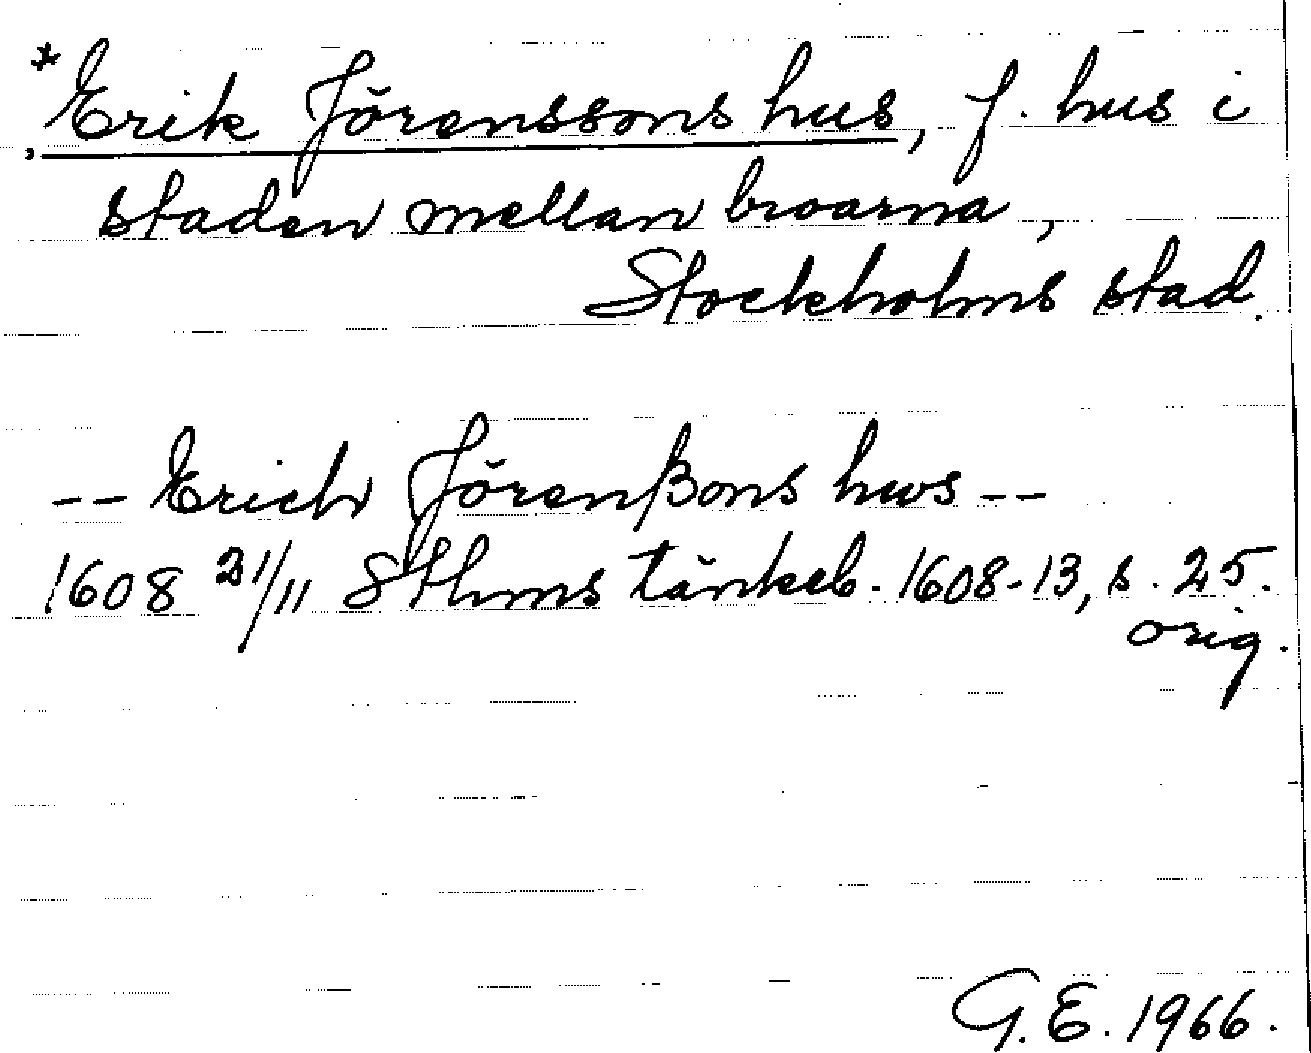 *Erik Jörenssons hus, f. hus i
staden mellan broarna,
Stockholms stad.
-- Erich Jörenßons hws --
1608 21/11 Sthms tänkeb. 1608-13, s. 25.
orig.
G.E. 1966.